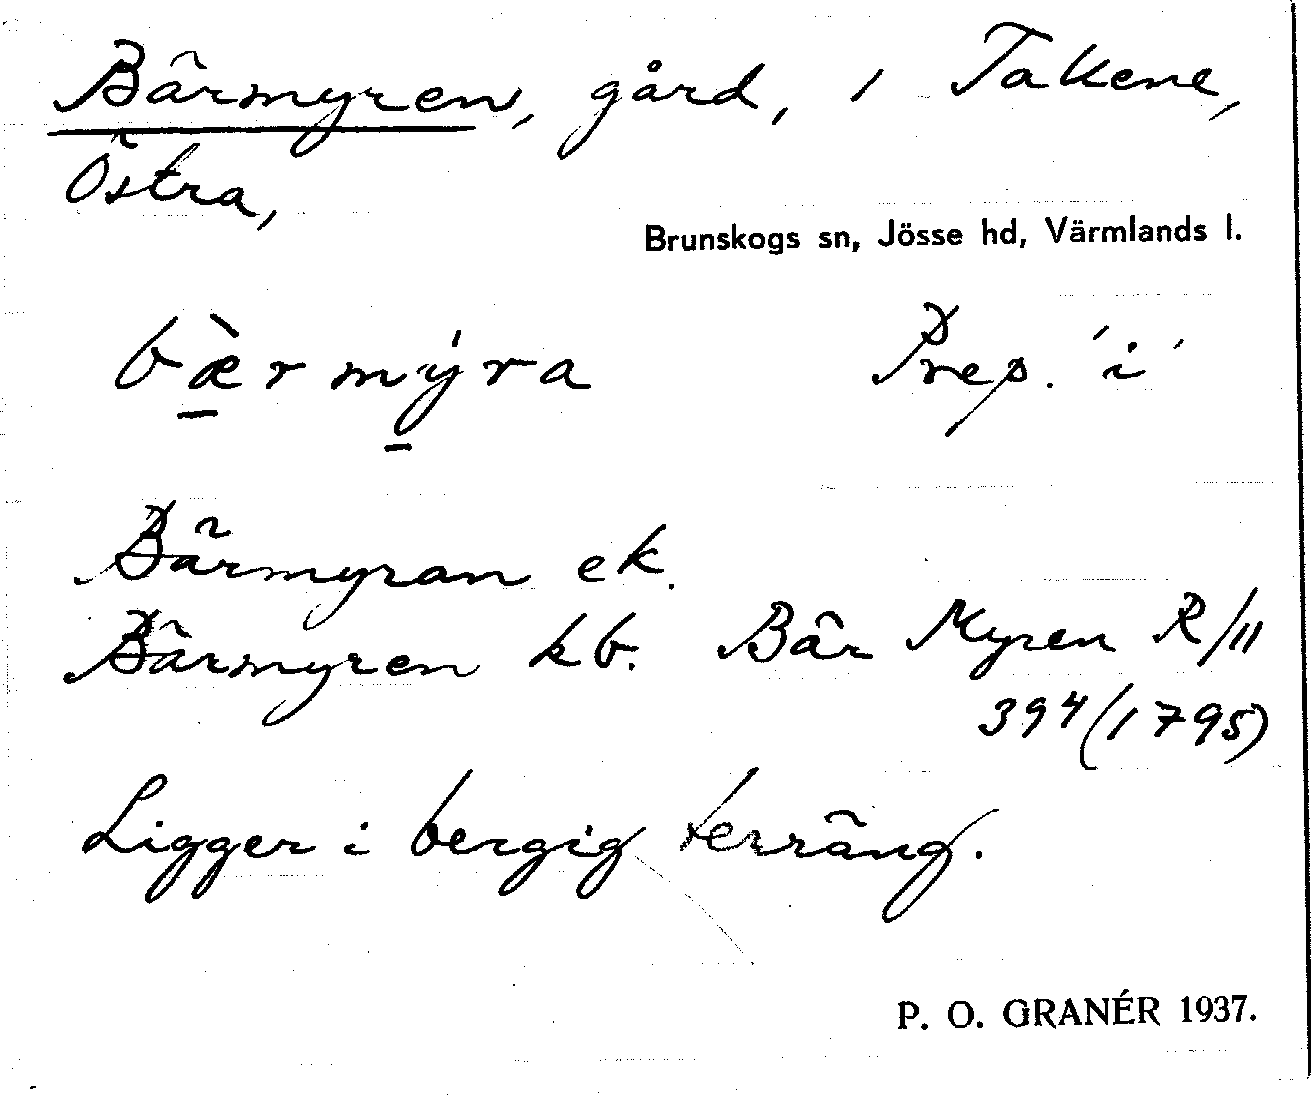 Bärmyren, gård, i Takene,
Östra,
Brunskogs sn, Jösse hd, Värmlands l.
bæ̠̀rmý̠ra Prep. 'i'
Bärmyran ek.
Bärmyren kb. Bär Myren R/11
394 (1795)
Ligger i bergig terräng.
P. O. GRANÉR 1937.